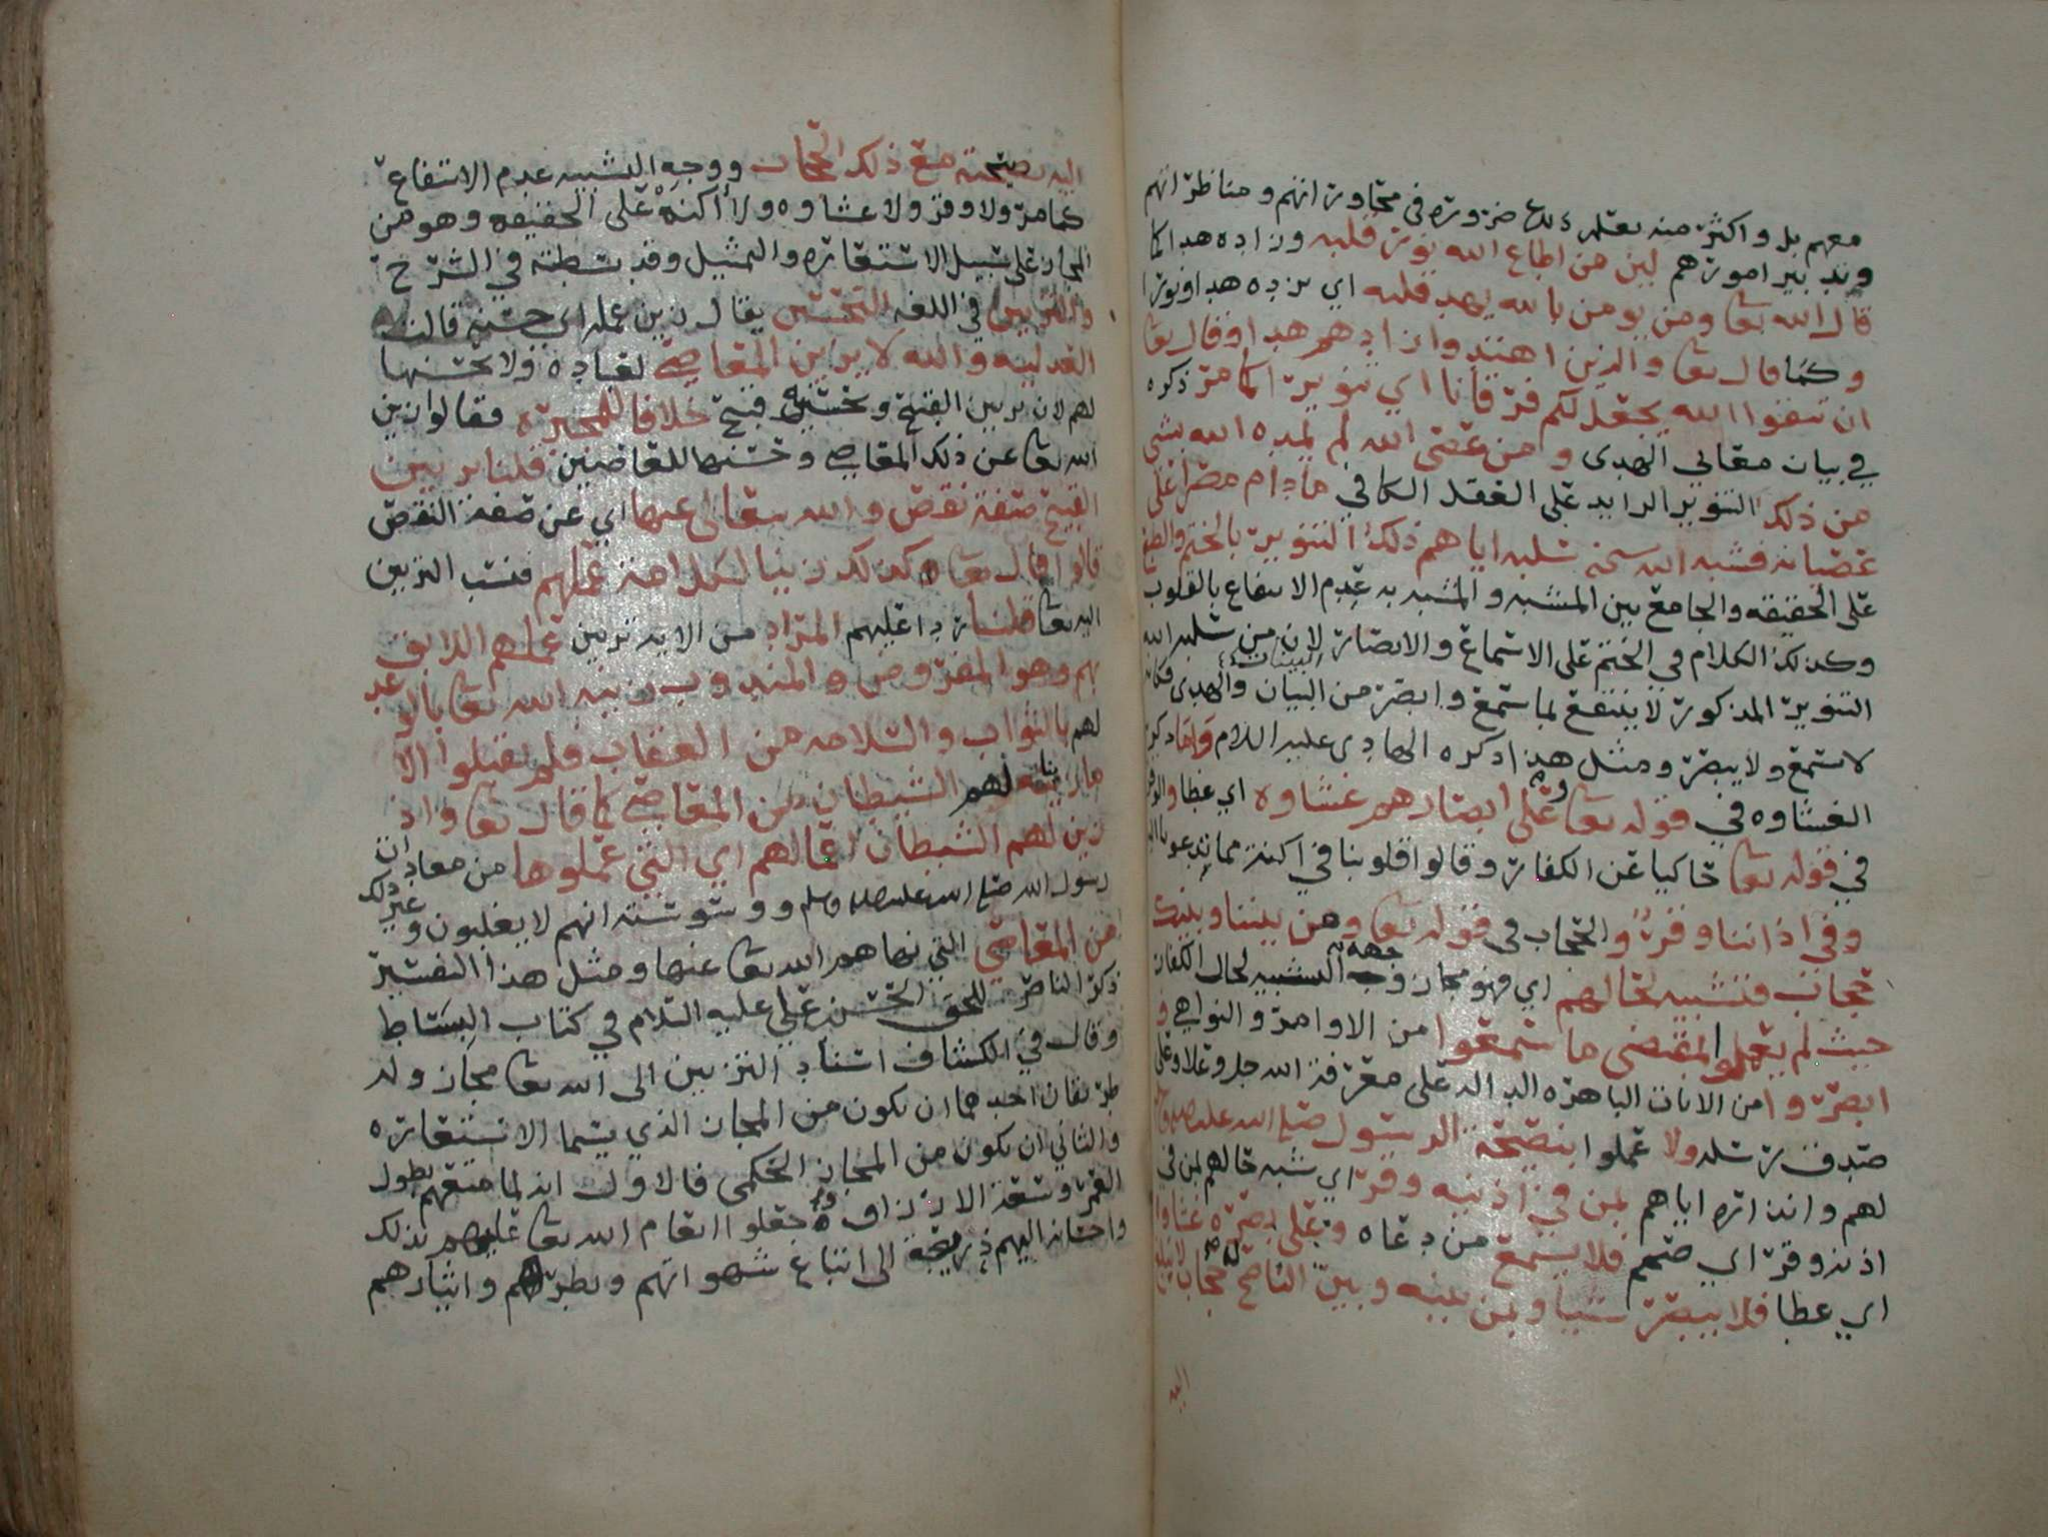 معهم بل واكثر منه يعلم ضرورة في محاوراتهم ومناظراتهم
وتدبير امورهم لين من اطاع الله نور قلبه وزاده هدا كما
قال الله تعا ومن يومن بالله يهد قلبه اي يزده هدا ونورا
وكما قال تعا والذين اهتدوا زادهم هدا وقال تعا
ان تتقوا الله يجعل لكم فرقانا اي تنويرا كما مر ذكره
في بيان معاني الهدى ومن عصى الله لم يمده الله بشي
من ذلك التنوير الزايد على العقل الكافي ما دام مصرا على
عصيانه فشبه الله سحنه سلبه اياهم ذلك التنوير بالختم والطبع
على الحقيقه والجامع بين المشبه والمشبه به عدم الانتفاع بالقلوب
وكذلك الكلام في الختم على الاسماع والابصار لان من سلبه الله
التنوير المذكور لا ينتفع بما سمع وابصر من البيان البينات والهدى فكانه
لا سمع ولا يبصر ومثل هذا ذكره الهادي عليه السلام واما ذكر
الغشاوه في قوله تعا وعلى ابصارهم غشاوه اي غطا والوقر
في قوله تعا حاكيا عن الكفار وقالوا قلوبنا في اكنة مما تدعونا اليه
وفي اذاننا وقر والحجاب في قوله تعا ومن بيننا وبينك
حجاب فتشبيه لحالهم اي فهو مجاز وجهه التشبيه لحال الكفار
حيث لم يعملوا بمقتضى ما سمعوا من الاوامر والنواهي و
ابصروا من الايات الباهره الداله على معرفة الله جل وعلا وعلى
صدق رسله ولا عملوا بنصيحة الرسول صلى الله عليه واله
لهم وانذاره اياهم بمن في اذنيه وقر اي شبه حالهم بمن في
اذنه وقر اي صمم فلا يسمع من دعاه وعلى بصره غشاوة
اي غطا فلا يبصر شيا وبمن بينه وبين الناصح له حجاب لا تبلغ
اليه
اليه نصيحته مع ذلك الحجاب ووجه التشبيه عدم الانتفاع
كما مر ولا وقر ولا غشاوه ولا أكنة على الحقيقه وهو من
المجاز على سبيل الاستعاره والتمثيل وقد بسطته في الشرح
والتزيين في اللغه التحسين يقال زين عمله اي حسنه قالت
العدليه والله لا يزين المعاصي لعباده ولا يحسنها
لهم لان تزيين القبيح وتحسينه قبيح خلافا للمجبره فقالوا زين
الله تعا عن ذلك المعاصي وحسنها للعاصين قلنا تزيين
القبيح صفة نقص والله يتعالى عنها اي عن صفة النقص
قالوا قال تعا كذلك زينا لكل امة عملهم فنسب التزيين
اليه تعا قلنا ردا عليهم المراد من الايه تزيين عملهم اللايق
بهم وهو المفروض والمندوب زينه الله تعا بالوعد
لهم بالثواب والسلامه من العقاب فلم يقبلوا الا
ما زينه لهم الشيطان من المعاصي كما قال تعا واذ
زين لهم الشيطان اعمالهم اي التي عملوها من معاداة
رسول الله صلى الله عليه واله وسلم ووسوسته انهم لا يغلبون وغير ذلك
من المعاصي التي نهاهم الله تعا عنها ومثل هذا التفسير
ذكر الناصر للحق الحسن بن علي عليه السلام في كتاب البساط
وقال في الكشاف اسناد التزيين الى الله تعا مجاز وله
طريقان احدهما ان يكون من المجاز الذي يسما الاستعاره
والثاني ان يكون من المجاز الحكمي فالاول انه لما متعهم بطول
العمر وسعة الارزاق جعلوا انعام الله تعا عليهم بذلك
واحسانه اليهم ذريعة الى اتباع شهواتهم وبطرهم وايثارهم